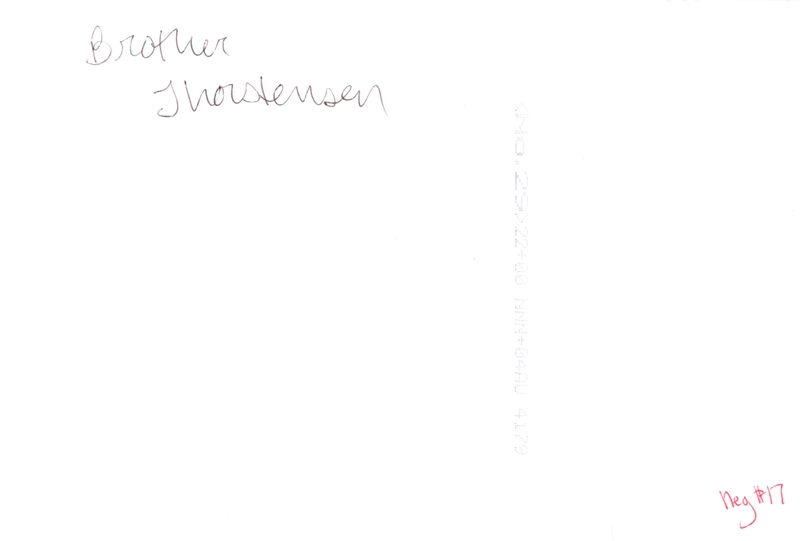 Brother
Thorstensen
<No.29>22+00 NNN+04AU 4179
Neg #17